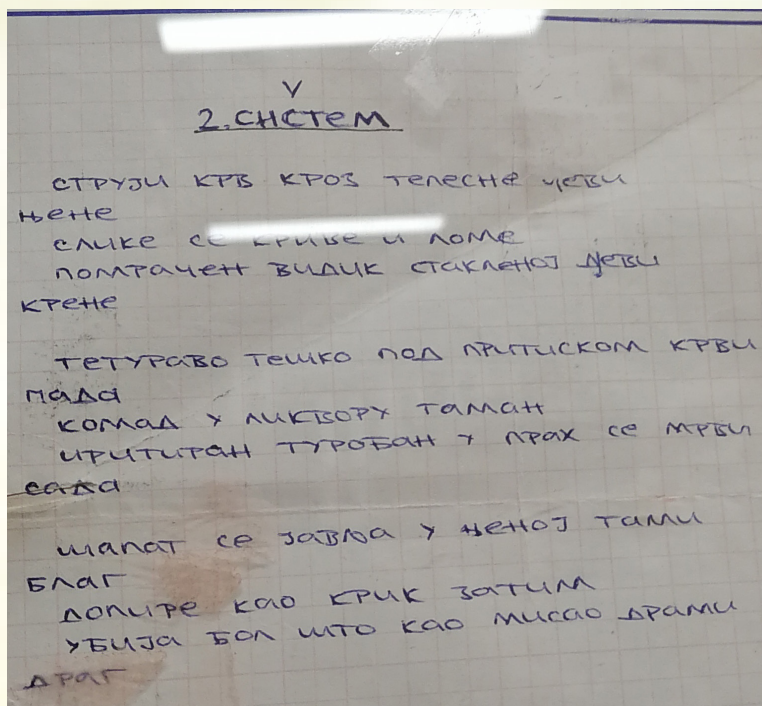 У
2. СИСТЕМ
СТРУЈИ КРВ КРОЗ ТЕЛЕСНЕ ЦЕВИ
ЊЕНЕ
СЛИКЕ СЕ КРИВЕ И ЛОМЕ
ПОМРАЧЕН ВИДИК СТАКЛЕНОЈ ДЕВИ
КРЕНЕ
ТЕТУРАВО ТЕШКО ПОД ПРИТИСКОМ КРВИ
ПАДА
КОМАД У ЛИКВОРУ ТАМАН
ИРИТИРАН ТУРОБАН У ПРАХ СЕ МРВИ
САДА
ШАПАТ СЕ ЈАВЉА У ЊЕНОЈ ТАМИ
БЛАГ
ДОПИРЕ КАО КРИК ЗАТИМ
УБИЈА БОЛ ШТО КАО МИСАО ДРАМИ
ДРАГ